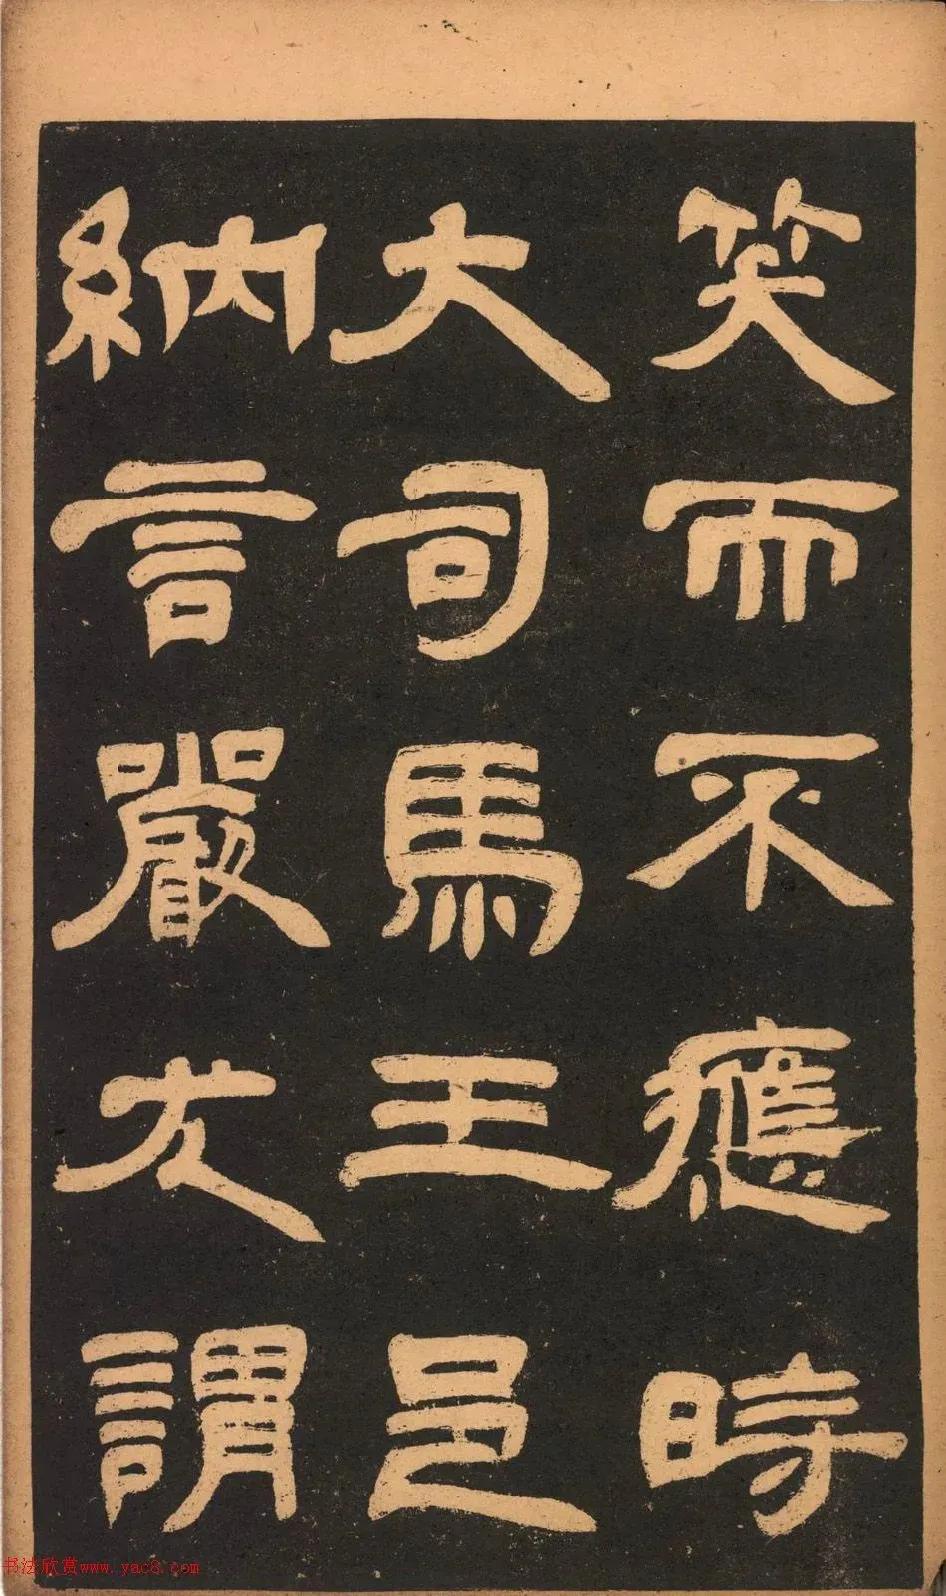 笑而不應時
大司馬王邑
納言嚴尤謂
书法欣赏www.yac8.com